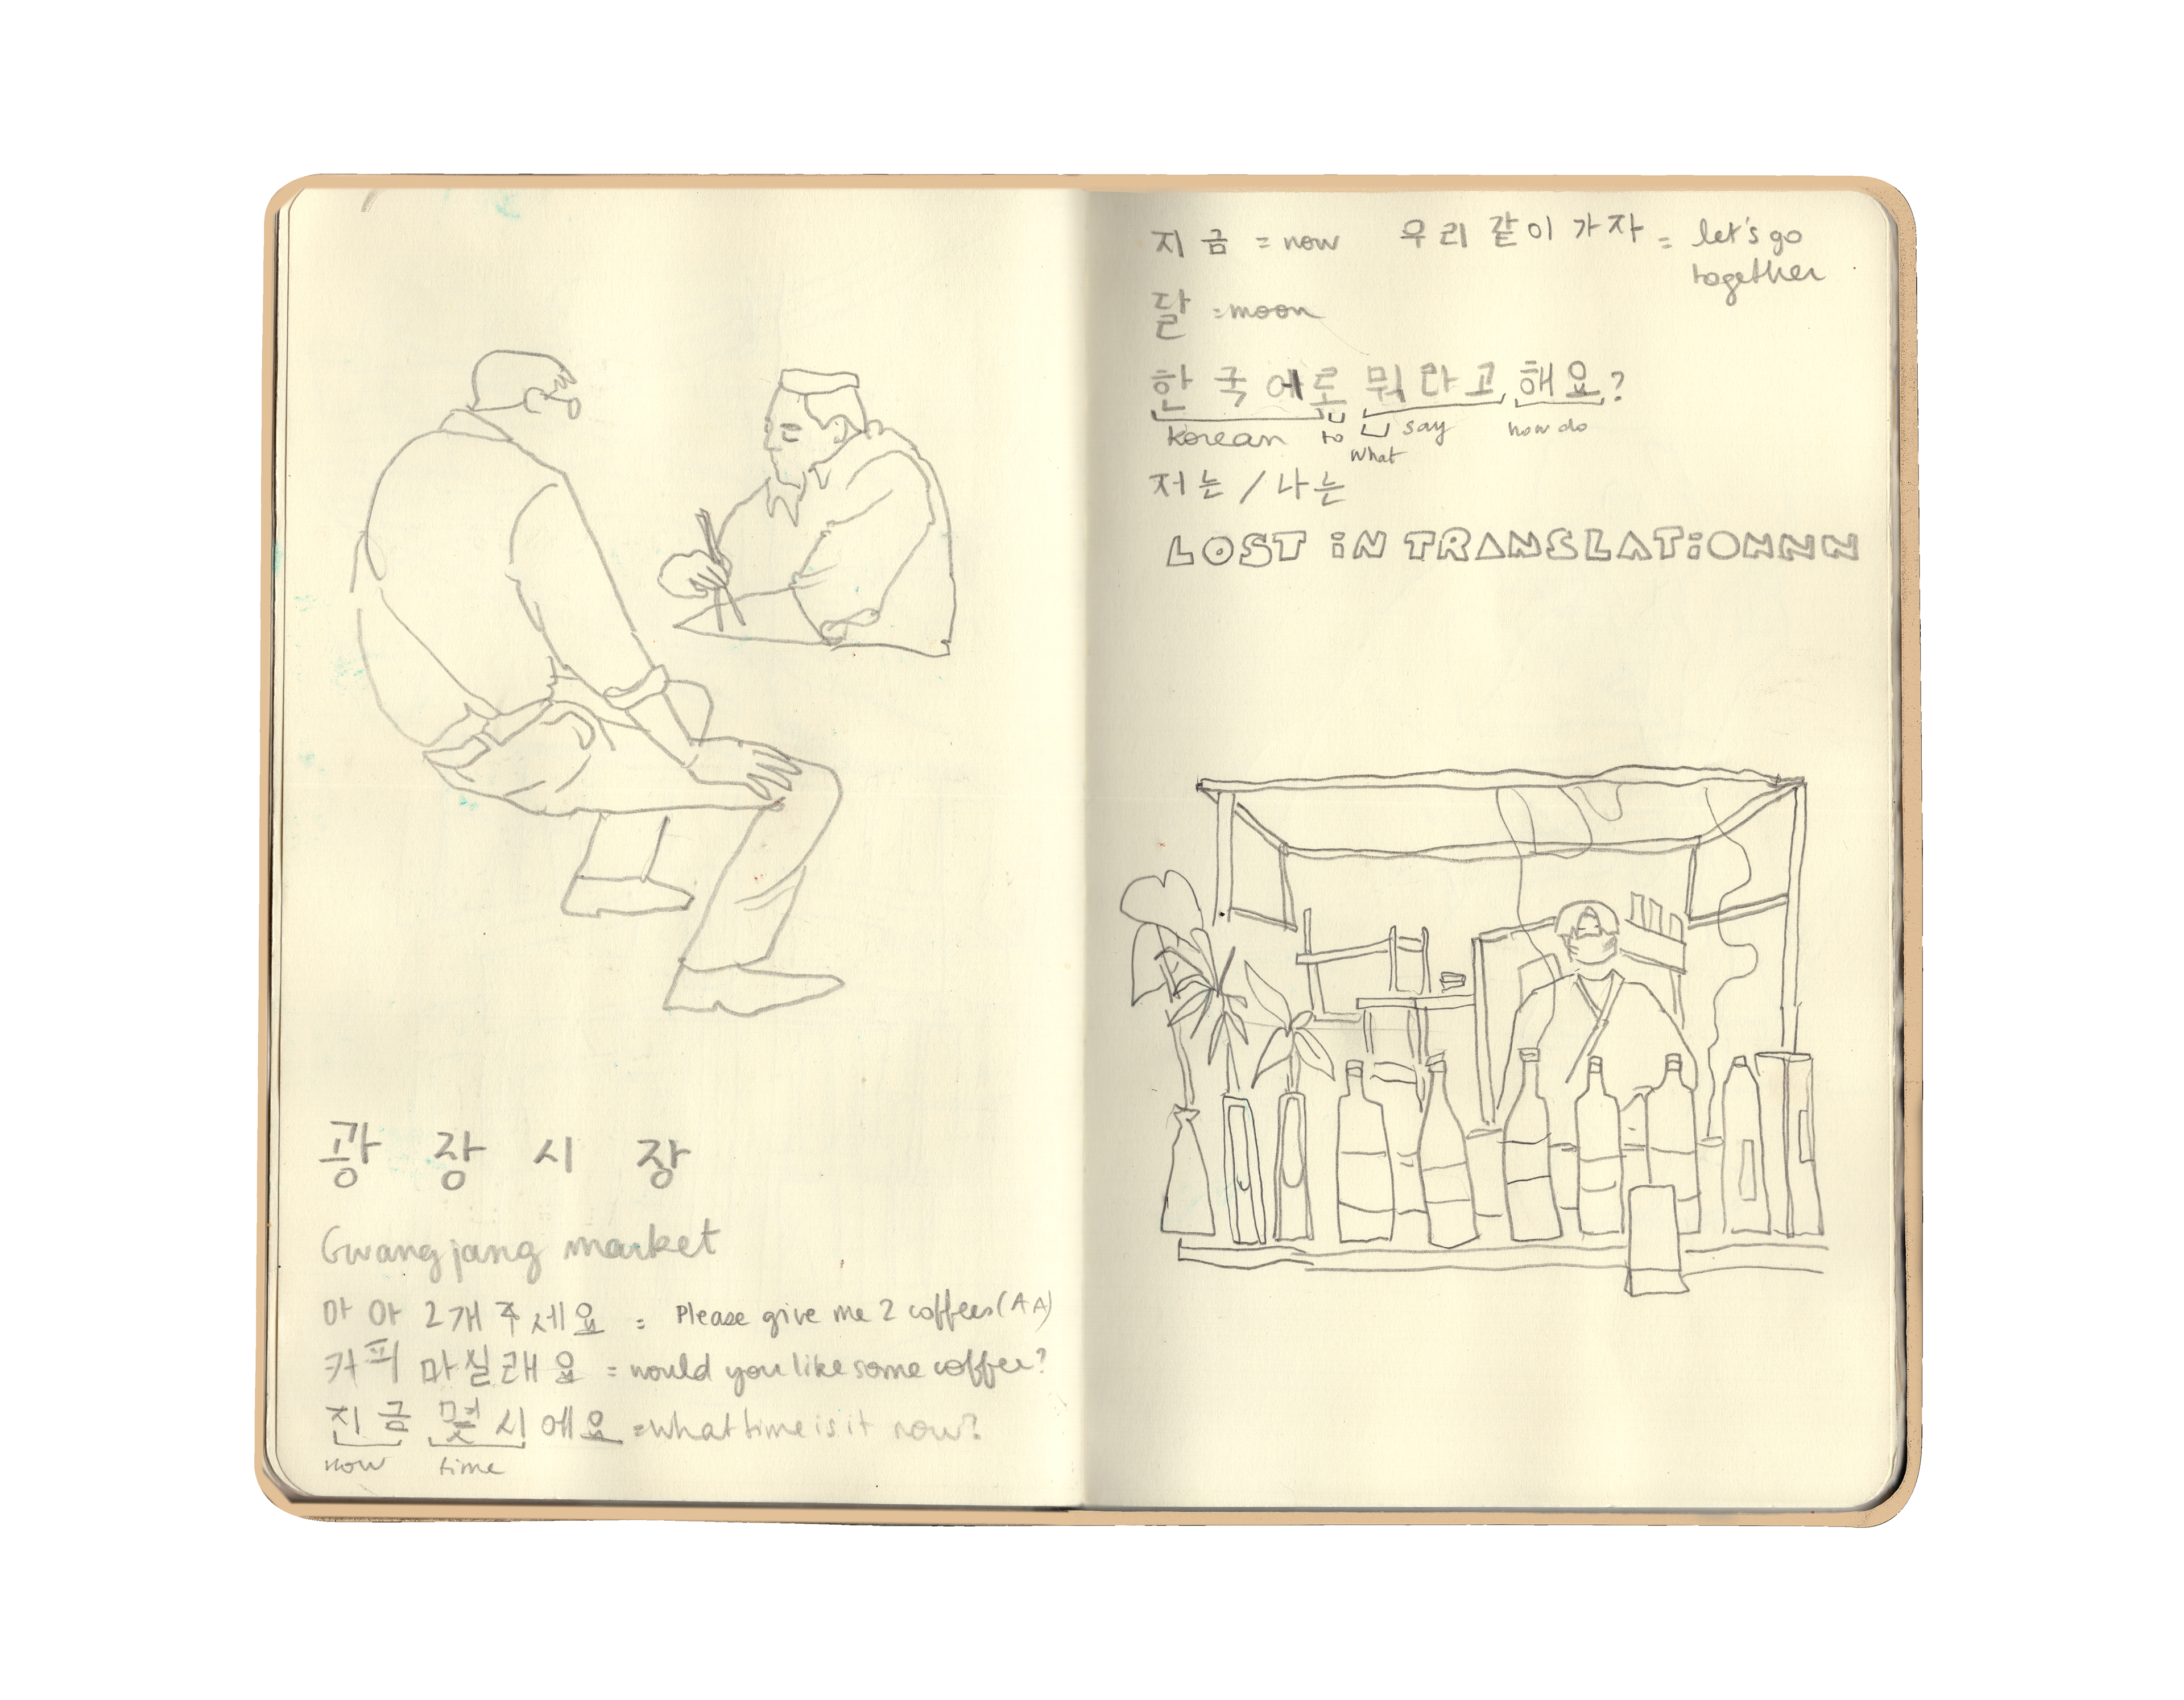 광 장 시 장
Gwangjang market
아 아 2개 주세요 = Please give me 2 coffees (AA)
커피 마실래요 = would you like some coffee?
진금 몇시에요 = what time is it now?
now time
지금 = now 우리 같이 가자 = let's go
together
달 = moon
한국에로 뭐라고 해요?
korean to say how do
what
저는 / 나는
LOST iN TRANSLATiONNN